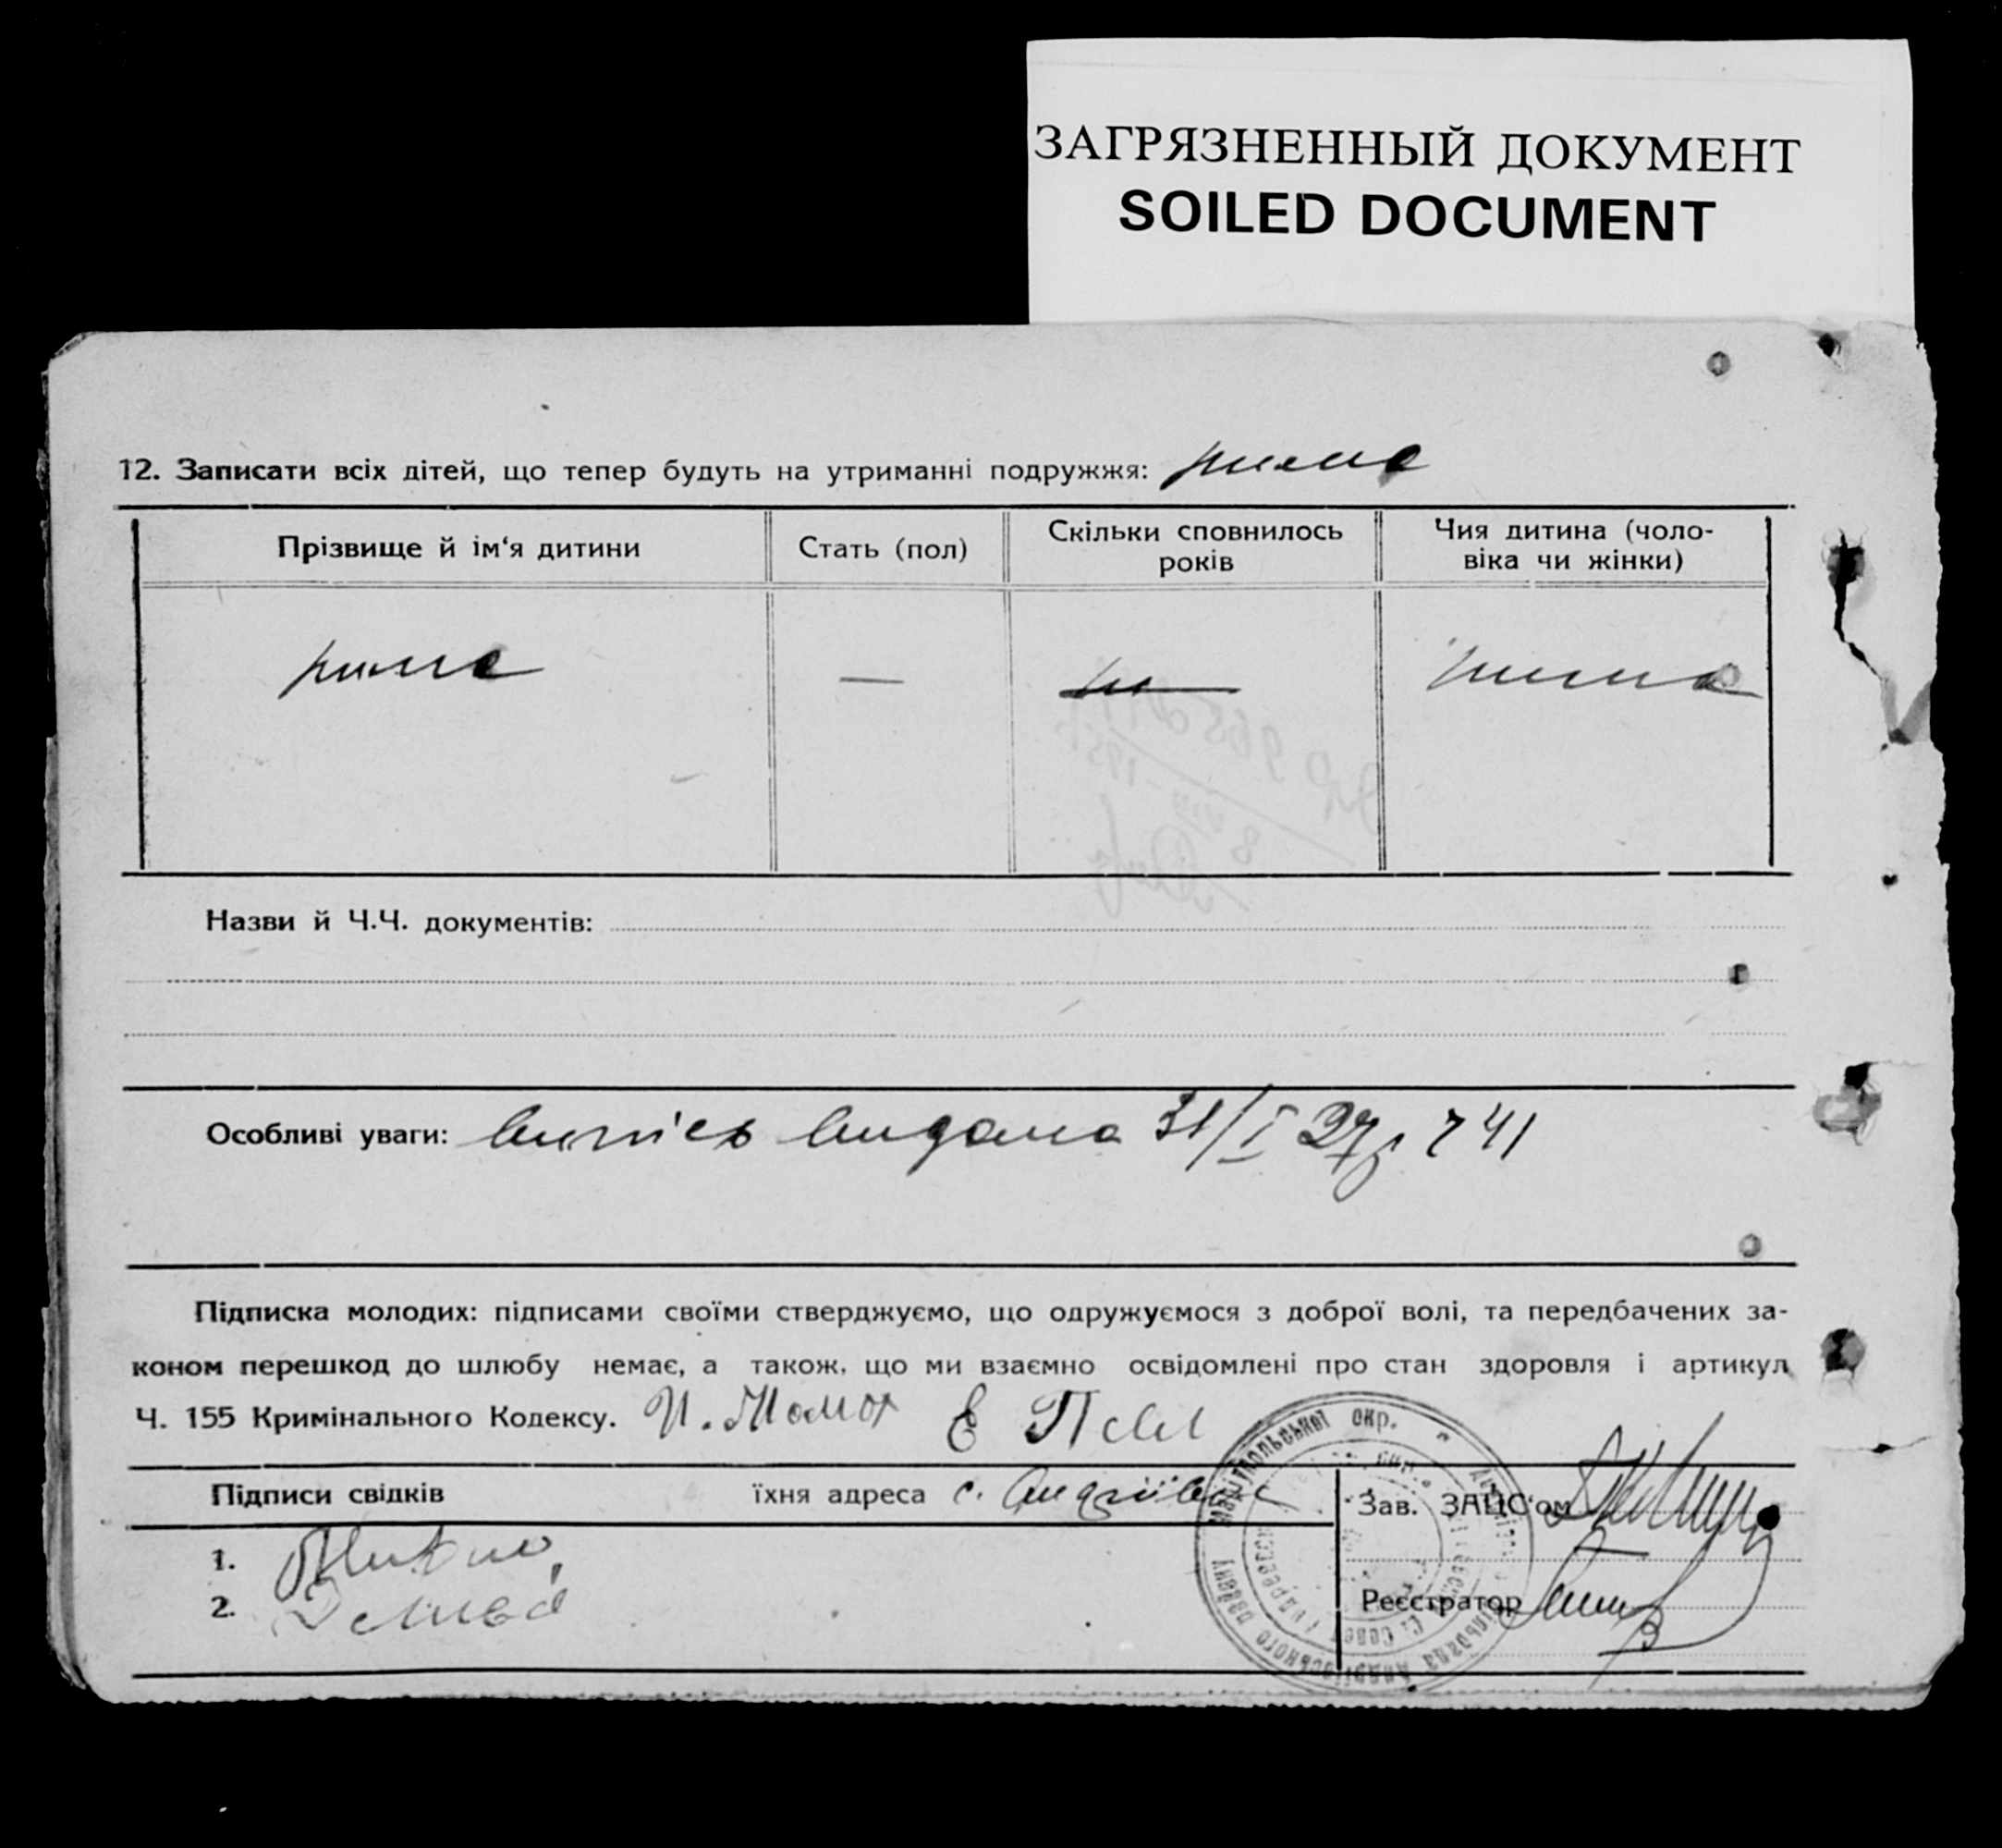 ЗАГРЯЗНЕННЫЙ ДОКУМЕНТ
SOILED DOCUMENT
12. Записати всіх дітей, що тепер будуть на утриманні подружжя: нима
Прізвище й ім‘я дитини Стать (пол) Скільки сповнилось років Чия дитина (чоло-віка чи жінки)
нима — нима
Назви й Ч.Ч. документів:
Особливі уваги: Виписъ видана 31/I 27р. 241
Підписка молодих: підписами своїми стверджуємо, що одружуємося з доброї волі, та передбачених за-
коном перешкод до шлюбу немає, а також, що ми взаємно освідомлені про стан здоровля і артикул
Ч. 155 Кримінального Кодексу.
Підписи свідків їхня адреса с. Андріївка Зав. ЗАЦС‘ом
1.
2. Реєстратор
Маріупольської окр.